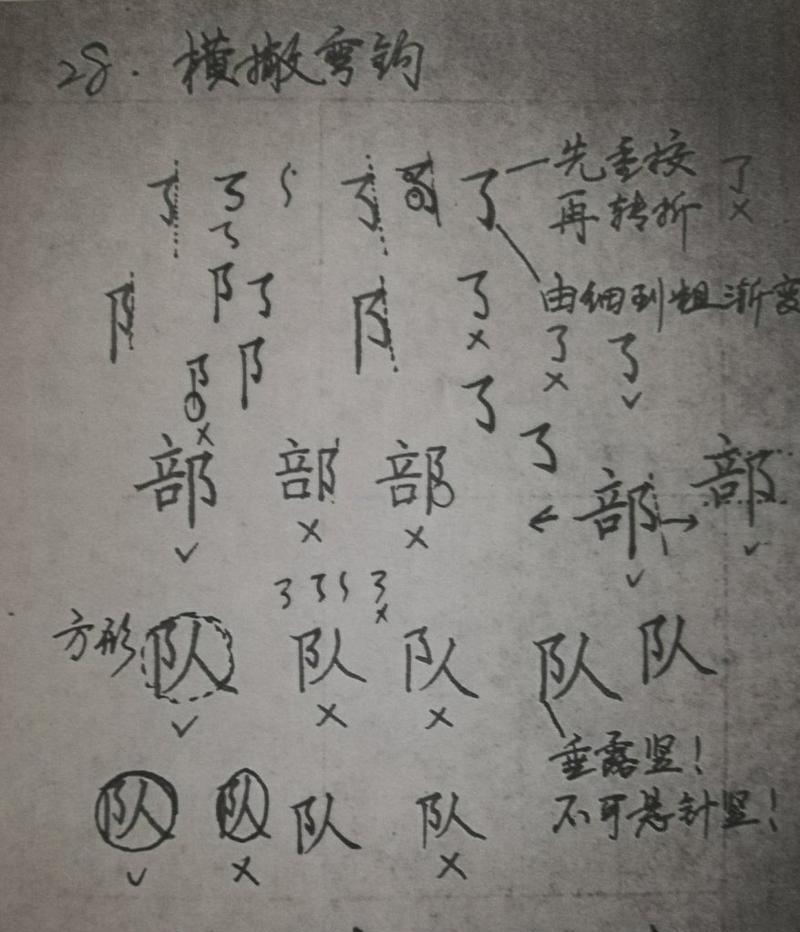 28. 横撇弯钩
先重按
再转折
由细到粗渐变
阝
部 部 部 部 部
方形 队 队 队 队 队
垂露竖!
不可悬针竖!
队 队 队 队